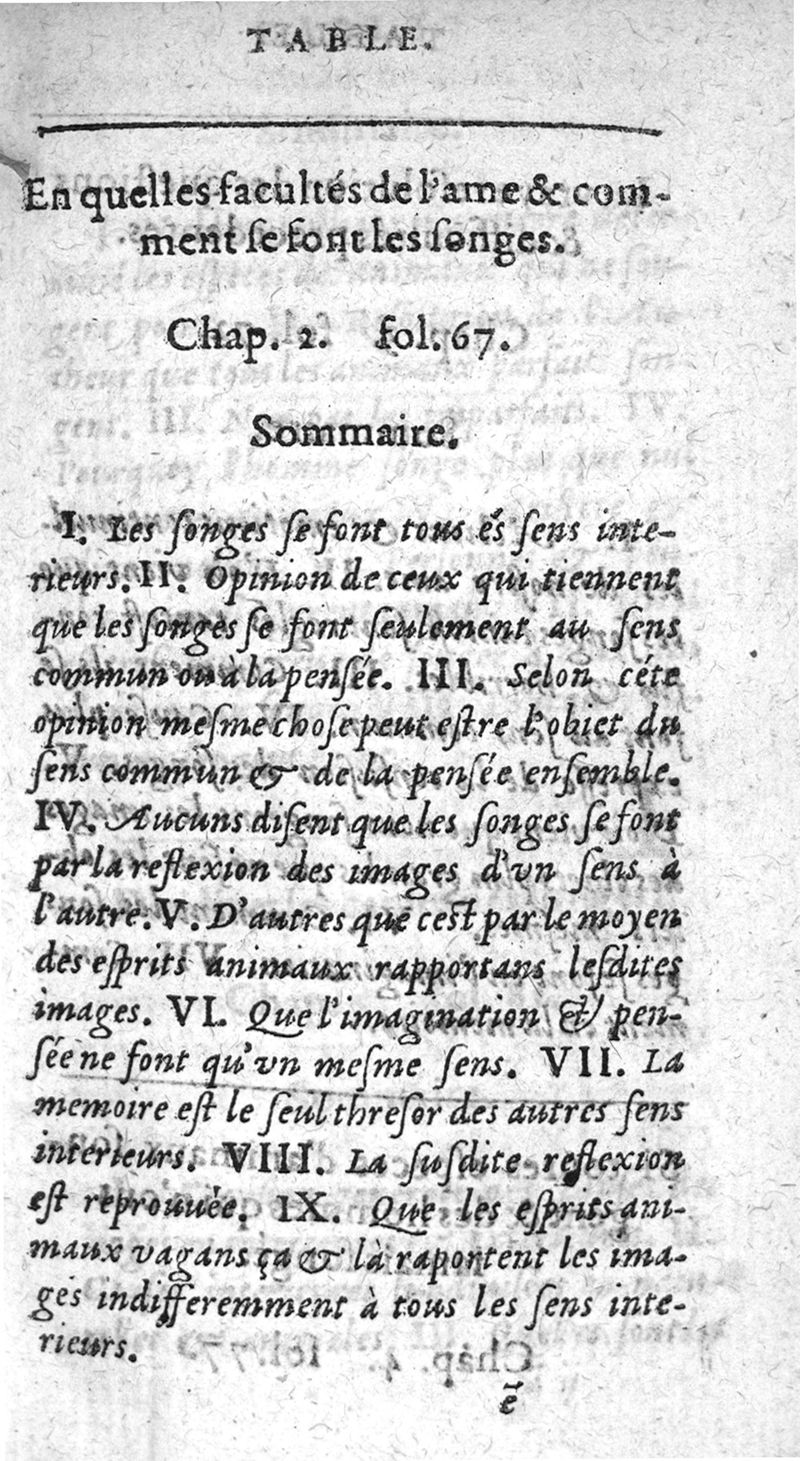 TABLE.
En quelles facultés de l'ame & com-
ment se font les songes.
Chap. 2. fol. 67.
Sommaire.
I. Les songes se font tous és sens inte-
rieurs. II. Opinion de ceux qui tiennent
que les songes se font seulement au sens
commun ou à la pensée. III. Selon céte
opinion mesme chose peut estre l'obiet du
sens commun & de la pensée ensemble.
IV. Aucuns disent que les songes se font
par la reflexion des images d'vn sens à
l'autre. V. D'autres que c'est par le moyen
des esprits animaux rapportans lesdites
images. VI. Que l'imagination & pen-
sée ne font qu'vn mesme sens. VII. La
memoire est le seul thresor des autres sens
interieurs. VIII. La susdite reflexion
est reprouuée. IX. Que les esprits ani-
maux vagans ça & là raportent les ima-
ges indifferemment à tous les sens inte-
rieurs.
ẽ